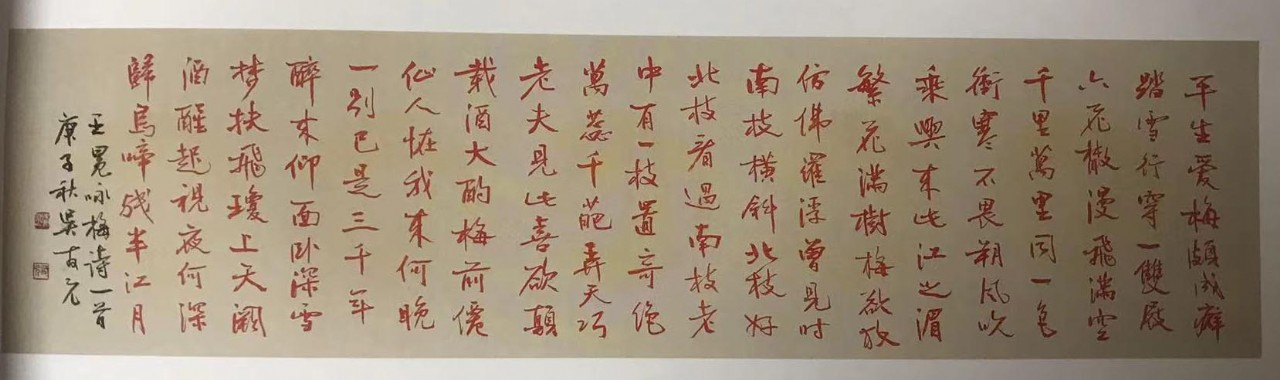 平生爱梅頗成癖
踏雪行穿一雙屐
六花散漫飛满空
千里萬里同一色
衝寒不畏朔风吹
乘興来此江之湄
繁花滿樹梅欲放
仿佛羅浮曾見时
南枝横斜北枝好
北枝看過南枝老
中有一枝置奇绝
萬蕊千葩弄天巧
老夫見此喜欲顛
载酒大酌梅前僊
仙人怪我来何晚
一别已是三千年
醉来仰面卧深雪
梦扶飛瓊上天闕
酒醒起視夜何深
歸鳥啼残半江月
王冕咏梅詩一首
庚子秋吴友元